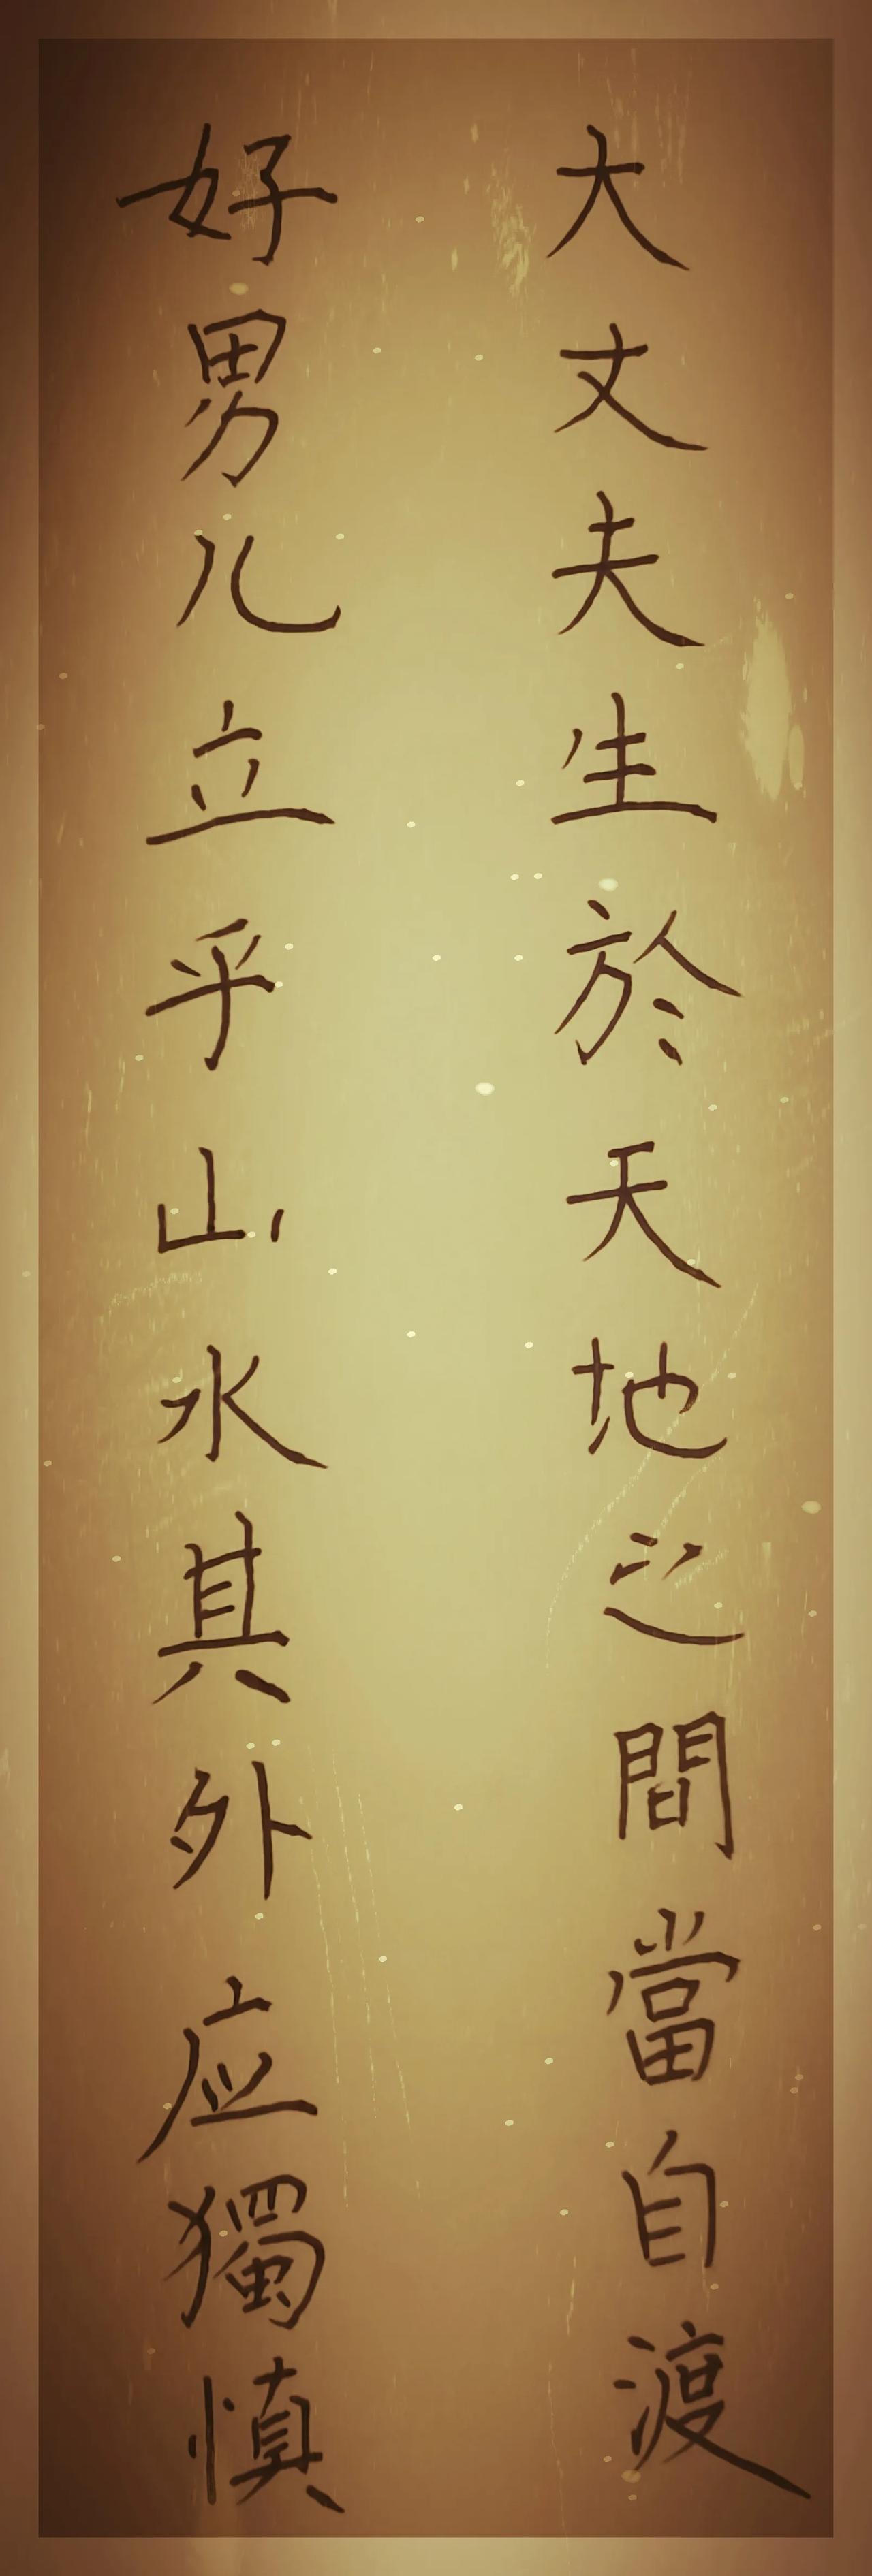 大丈夫生於天地之間當自渡
好男儿立乎山水其外应獨慎